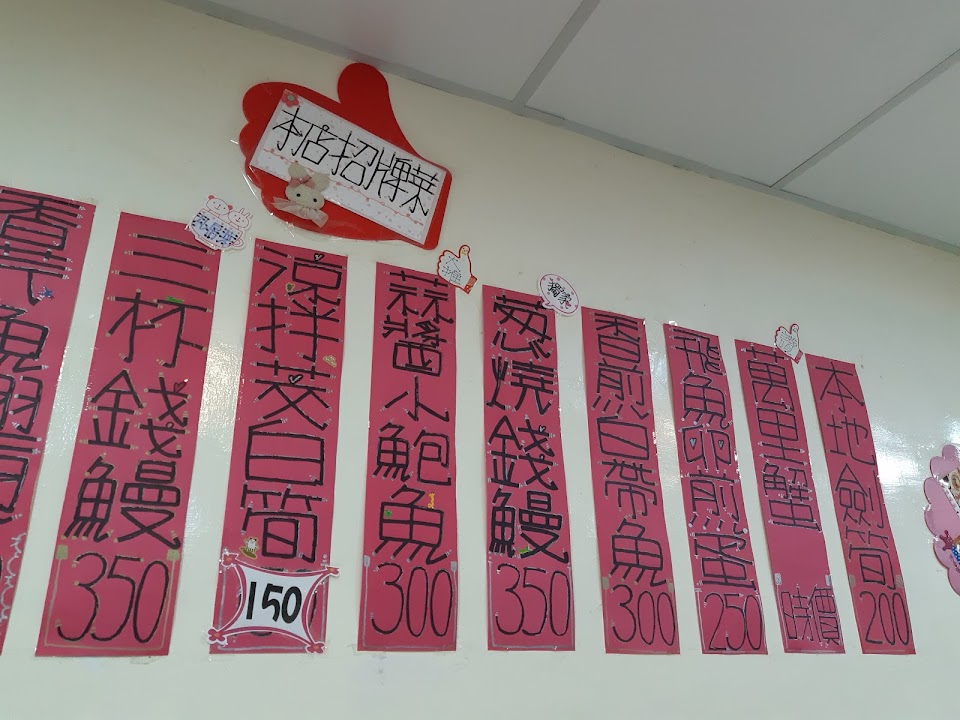 本店招牌菜
三杯錢鰻 350
涼拌茭白筍 150
蒜醬小鮑魚 300
獨家
葱燒錢鰻 350
香煎白帶魚 300
飛魚卵煎蛋 250
萬里蟹 時價
本地劍筍 200